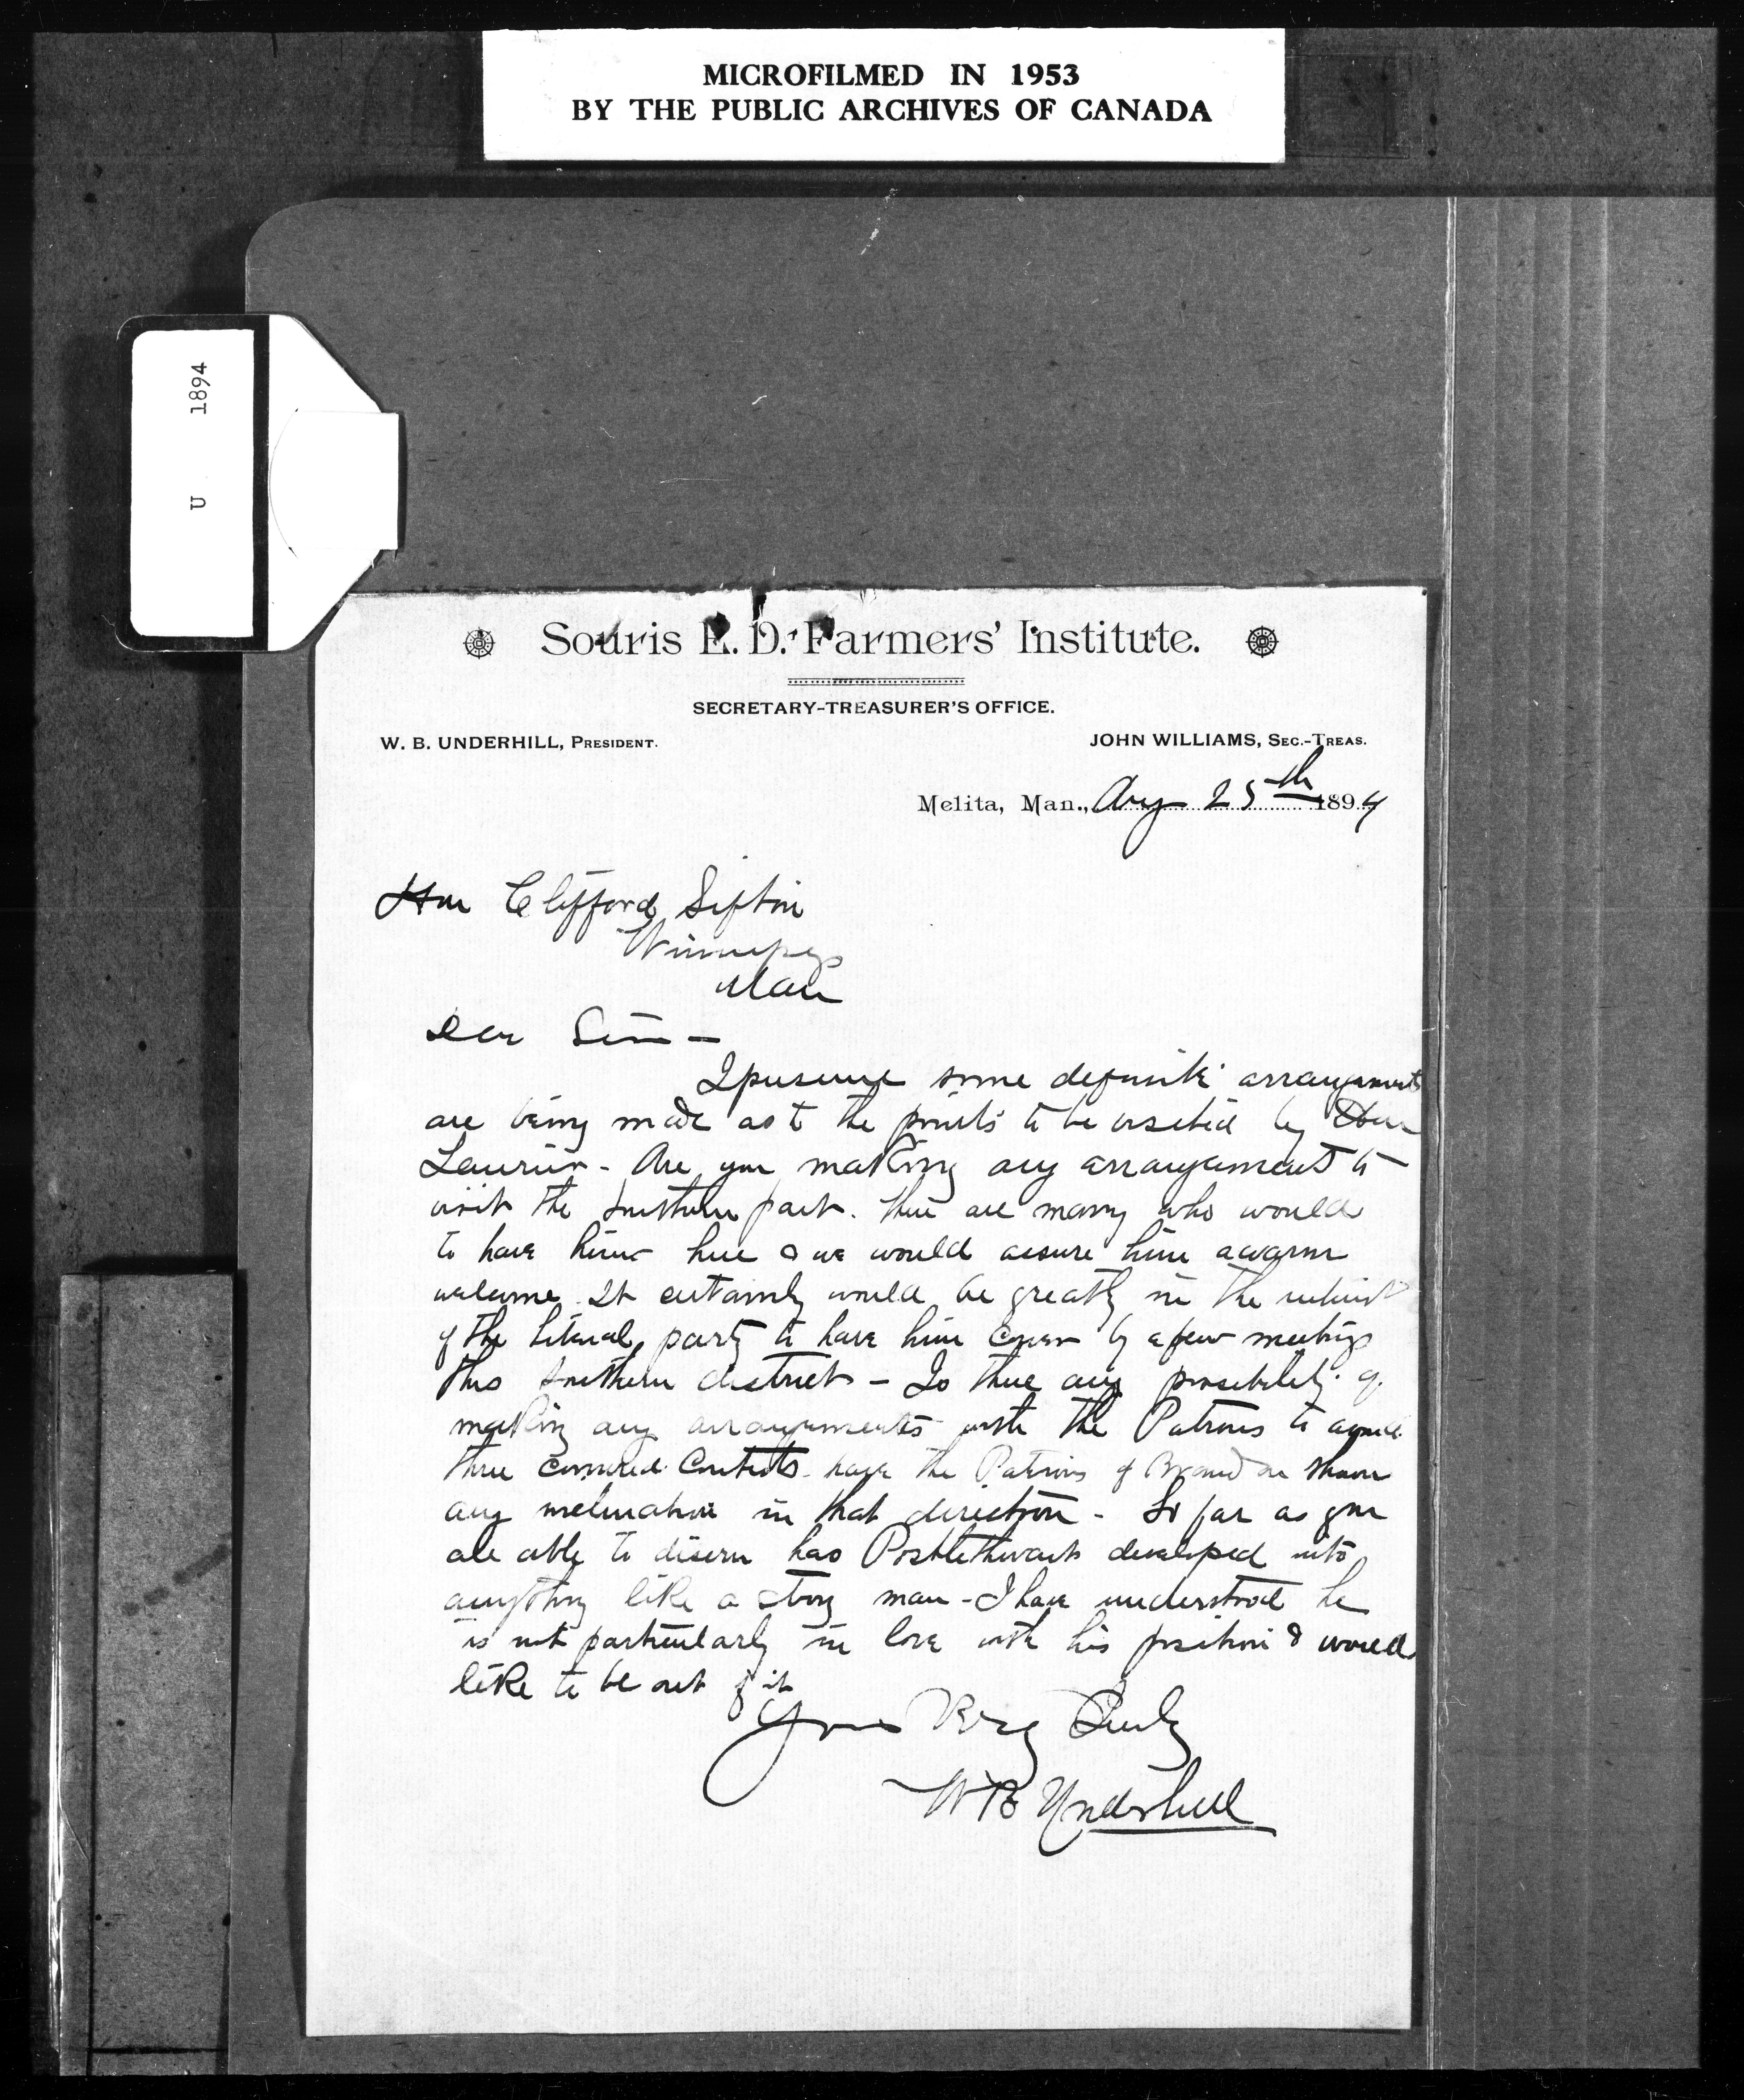 MICROFILMED IN 1953
BY THE PUBLIC ARCHIVES OF CANADA
U 1894
Souris E. D. Farmers' Institute.
SECRETARY-TREASURER'S OFFICE.
W. B. UNDERHILL, PRESIDENT.
JOHN WILLIAMS, SEC.-TREAS.
Melita, Man., Aug 25th 1894
Hon Clifford Sifton
Winnipeg
Man
Dear Sir –
I presume some definite arrangements
are being made as to the points to be visited by Hon
Laurier - Are you making any arrangement to
visit the southern part. There are many who would
to have him here & we would assure him a warm
welcome. It certainly would be greatly in the interest
of the Liberal party to have him cover by a few meetings
this southern district – Is there any possibility of
making any arrangements with the Patrons to avoid
three cornered contests. have the Patrons of Brandon shown
any inclination in that direction - So far as you
are able to discern has Postlethwaite developed into
anything like a strong man - I have understood he
is not particularly in love with his position & would
like to be out of it
Yours Very Truly
W B Underhill